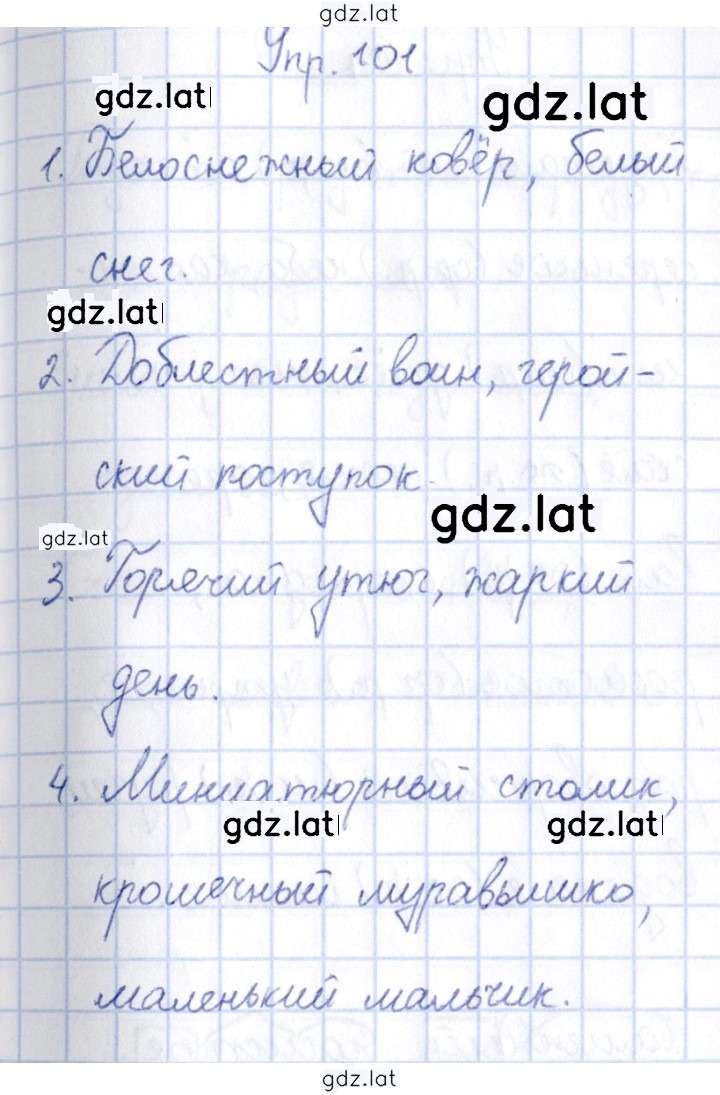 gdz.lat
Упр. 101
gdz.lat gdz.lat
1. Белоснежный ковёр, белый
снег.
gdz.lat
2. Доблестный воин, герой-
ский поступок.
gdz.lat
gdz.lat
3. Горячий утюг, жаркий
день.
4. Миниатюрный столик,
gdz.lat gdz.lat
крошечный муравьишко,
маленький мальчик.
gdz.lat